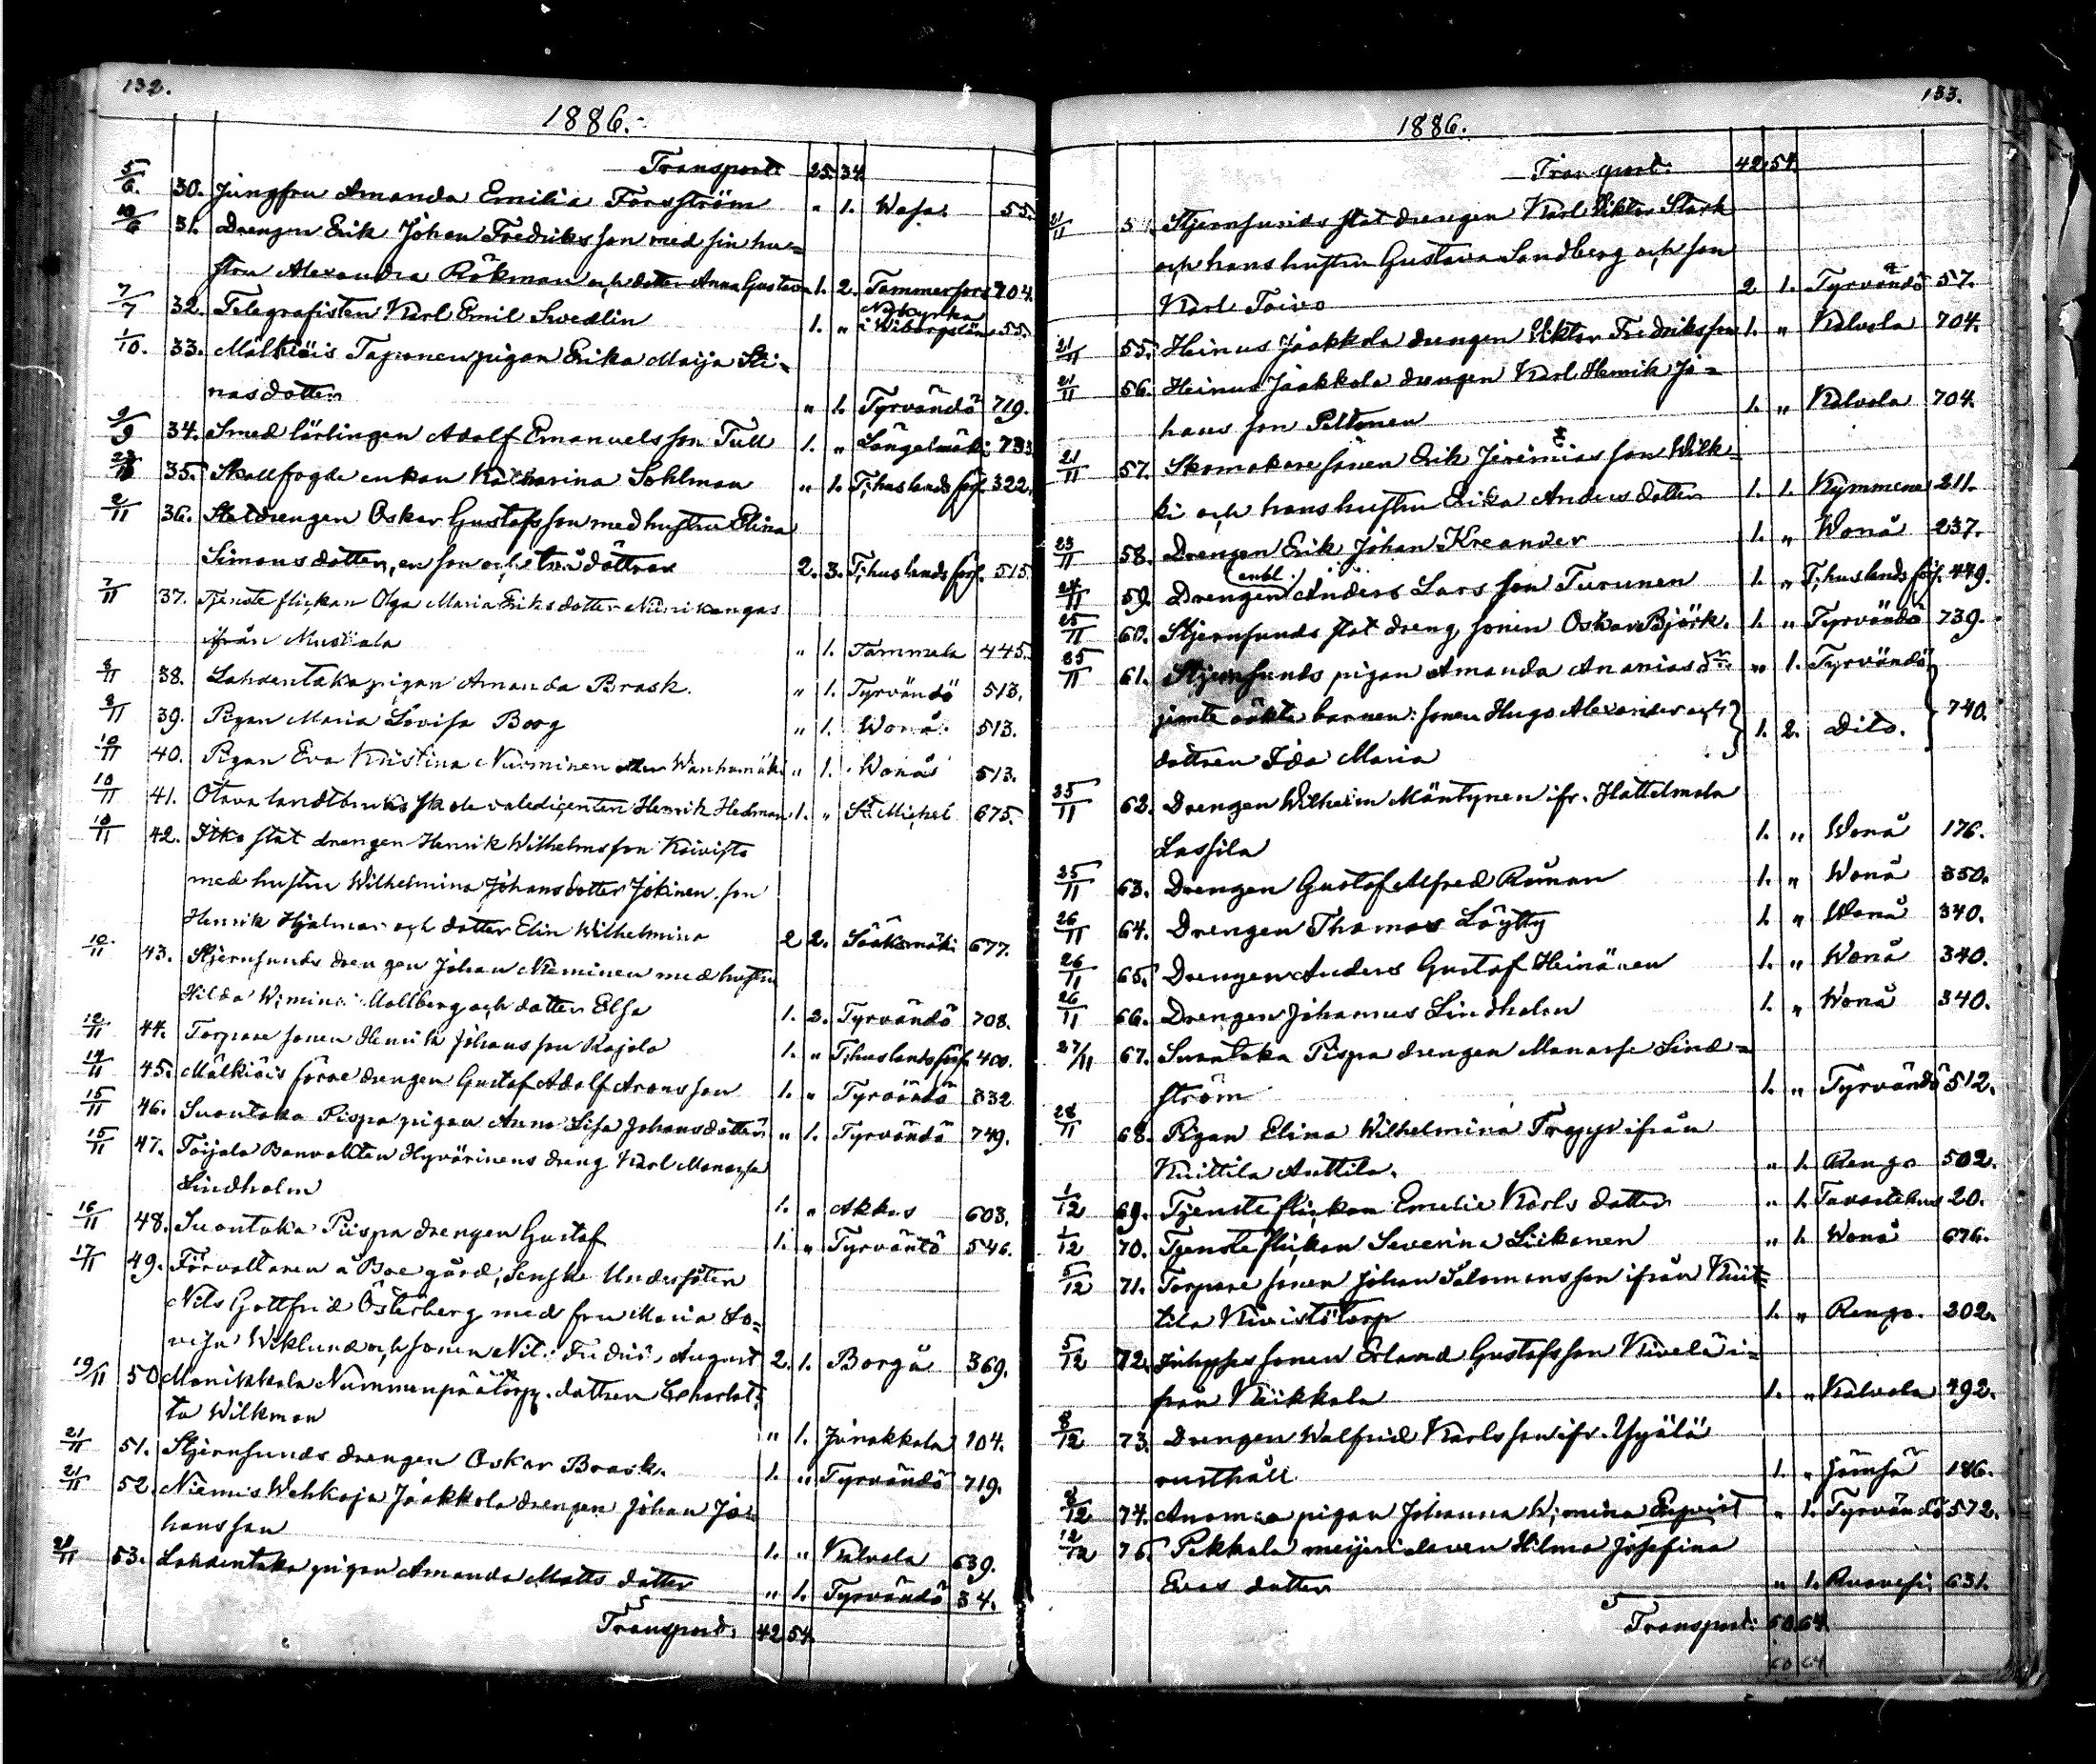 132.
1886.
Transport: 25. 34.
5/6. 30. Jungfru Amanda Emilia Forsström " 1. Wasa. 55.
10/6 31. Drengen Erik Johan Fredriksson med sin hu=
stru Alexandra Rökman och dotter Anna Gustava 1. 2. Tammerfors 704.
7/7 32. Telegrafisten Karl Emil Swedlin 1. " Nykyrka i Wiborgs län 55.
1/10. 33. Mälkiäis Taponen pigan Erika Maija Sti=
nasdotter " 1. Tyrvändö 719.
9/9 34. Smed lärlingen Adolf Emanuelsson Tull 1. " Längelmäki 733
35. Skallfogde enkan Katharina Sohlman " 1. T;hus lands förs. 322.
2/11 36. Statdrengen Oskar Gustafsson med hustru Elina
Simonsdotter, en son och två döttrar 2. 3. T;hus lands förs. 515.
7/11 37. Tjenste flickan Olga Maria Eriksdotter Nurikangas
ifrån Mustiala " 1. Tammela 445.
8/11 38. Lahdentaka pigan Amanda Brask. " 1. Tyrvändö 513.
8/11 39. Pigan Maria Lovisa Boog " 1. Wonå. 513.
10/11 40. Pigan Eva Kristina Nurminen eller Wanhamäki " 1. Wonå 513.
10/11 41. Otava landtbruks skole valedicenten Henrik Hedman 1. " St Michel 675.
10/11 42. Itko stat drengen Henrik Wilhelmsson Koivisto
med hustru Wilhelmina Johansdotter Jokinen, son
Henrik Hjalmar och dotter Elin Wilhelmina 2 2. Sääksmäki 677.
10/11 43. Stjernsunds drengen Johan Nieminen med hustru
Hilda W;mina Mollberg och dotter Elsa 1. 2. Tyrvändö 708.
12/11 44. Torpare sonen Henrik Johansson Rajala 1. " T;hus lands förs. 400.
14/11 45. Mälkiäis Sorae drengen Gustaf Adolf Aronsson 1. " Tyrvändö 332
15/11 46. Suontaka Pispa pigan Anna Lisa Johansdotter " 1. Tyrvändö 749.
15/11 47. Toijala Banvakten Hyvärinens dreng Karl Manasse
Lindholm 1. " Akkas 603.
16/11 48. Suontaka Piispa drengen Gustaf 1. " Tyrväntö 546.
17/11 49. Förvaltaren å Boe gård, Svenske Undersåten
Nils Gottfrid Österberg med fru Maria Lo=
visa Wiklund och sonen Nils Fredrik August 2. 1. Borgå 369.
19/11 50 Monikkala Nummenpää torp. dottren Charlot=
ta Wilkman " 1. Janakkala 104.
21/11 51. Stjernsunds drengen Oskar Brask. 1. " Tyrvändö 719.
21/11 52. Niemis Wehkoja Jaakkola drengen Johan Jo=
hansson 1. " Kalvola 639.
21/11 53. Lahdentaka pigan Amanda Matts dotter " 1. Tyrvändö 34.
Transport: 42 54.
133.
1886.
Transport: 42. 54.
21/11 5 Stjernsunds stat drengen Karl Viktor Stark
och hans hustru Gustava Sandberg och son
Karl Toivo 2 1. Tyrvändö 57.
21/11 55. Heinus Jaakkola drengen Viktor Fredriksson 1. " Kalvola 704.
21/11 56. Heinus Jaakkola drengen Karl Henrik Jo=
hans son Peltonen 1. " Kalvola 704.
21/11 57. Skomakare sonen Erik Jeremias son Wilk=
ki och hans hustru Erika Anders dotter 1. 1. Kymmene 211.
23/11 58. Drengen Erik Johan Kreander 1. " Wonå 237.
24/11 59. Drengen Anders Lars son Turunen 1. " T;hus lands förs. 449.
25/11 60. Stjernsunds stat dreng sonen Oskar Björk. 1. " Tyrvändö 739.
25/11 61. Stjernsunds pigan Amanda Ananias dr " 1. Tyrvändö
jemte oäkta barnen: sonen Hugo Alexander och 1. 2. Dito. 740.
dottren Ida Maria
25/11 62. Drengen Wilhelm Mäntynen ifr. Hattelmala
Lassila 1. " Wonå 176.
25/11 63. Drengen Gustaf Alfred Roman 1. " Wonå 350.
26/11 64. Drengen Thomas Löytty 1. " Wonå 340.
26/11 65. Drengen Anders Gustaf Heinänen 1. " Wonå 340.
26/11 66. Drengen Johannes Lindholm 1. " Wonå 340.
27/11 67. Suontaka Pispa drengen Manasse Lind=
ström 1. " Tyrvändö 512.
28/11 68. Pigan Elina Wilhelmina ifrån
Kuittila Anttila. " 1. Rengo 502.
1/12 69. Tjenste flickan Emelie Karls dotter " 1. Tavastehus 20.
1/12 70. Tjenste flickan Severina Liikanen " 1. Wonå 676.
5/12 71. Torpare sonen Johan Salomonsson ifrån Kuit=
tila Kivistö torp 1. " Rengo. 302.
5/12 72. Inhyses sonen Erland Gustafsson Kivelä i=
från Kiikkala 1. " Kalvola 492.
8/12 73. Drengen Walfrid Karlsson ifr. Hyjälä
rusthåll 1. " Jämsä 186.
8/12 74. pigan Johanna W;mina Enqvist " 1. Tyrvändö 572.
12/12 75. Pekkala meijeridaren Hilma Josefina
Evas dotter " 1. Ruovesi 631.
Transport: 60 64.
60 64